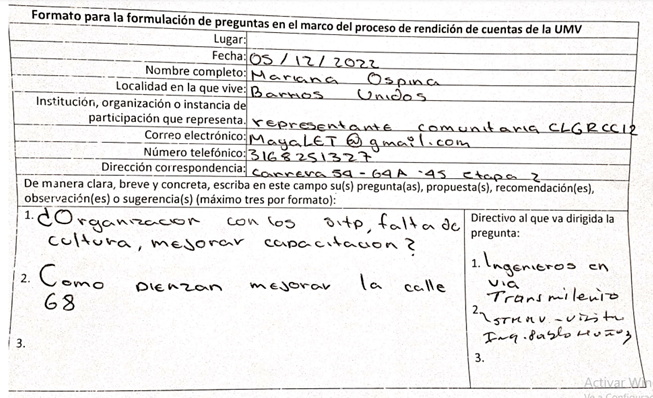 Formato para la formulación de preguntas en el marco del proceso de rendición de cuentas de la UMV
Lugar:
Fecha: 05/12/2022
Nombre completo: Mariana Ospina
Localidad en la que vive: Barrios Unidos
Institución, organización o instancia de
participación que representa. representante comunitaria CLGRCC12
Correo electrónico: MayaLET@gmail.com
Número telefónico: 3168251327
Dirección correspondencia: Carrera 59 - 64A -45 etapa 2
De manera clara, breve y concreta, escriba en este campo su(s) pregunta(as), propuesta(s), recomendación(es),
observación(es) o sugerencia(s) (máximo tres por formato):
1. ¿Organizacion con los sitp, falta de
cultura, mejorar capacitacion?
2. Como pienzan mejorar la calle
68
3.
Directivo al que va dirigida la
pregunta:
1. Ingenieros en
via
Transmilenio
2.
Ing. Pablo
3.
Activar Win